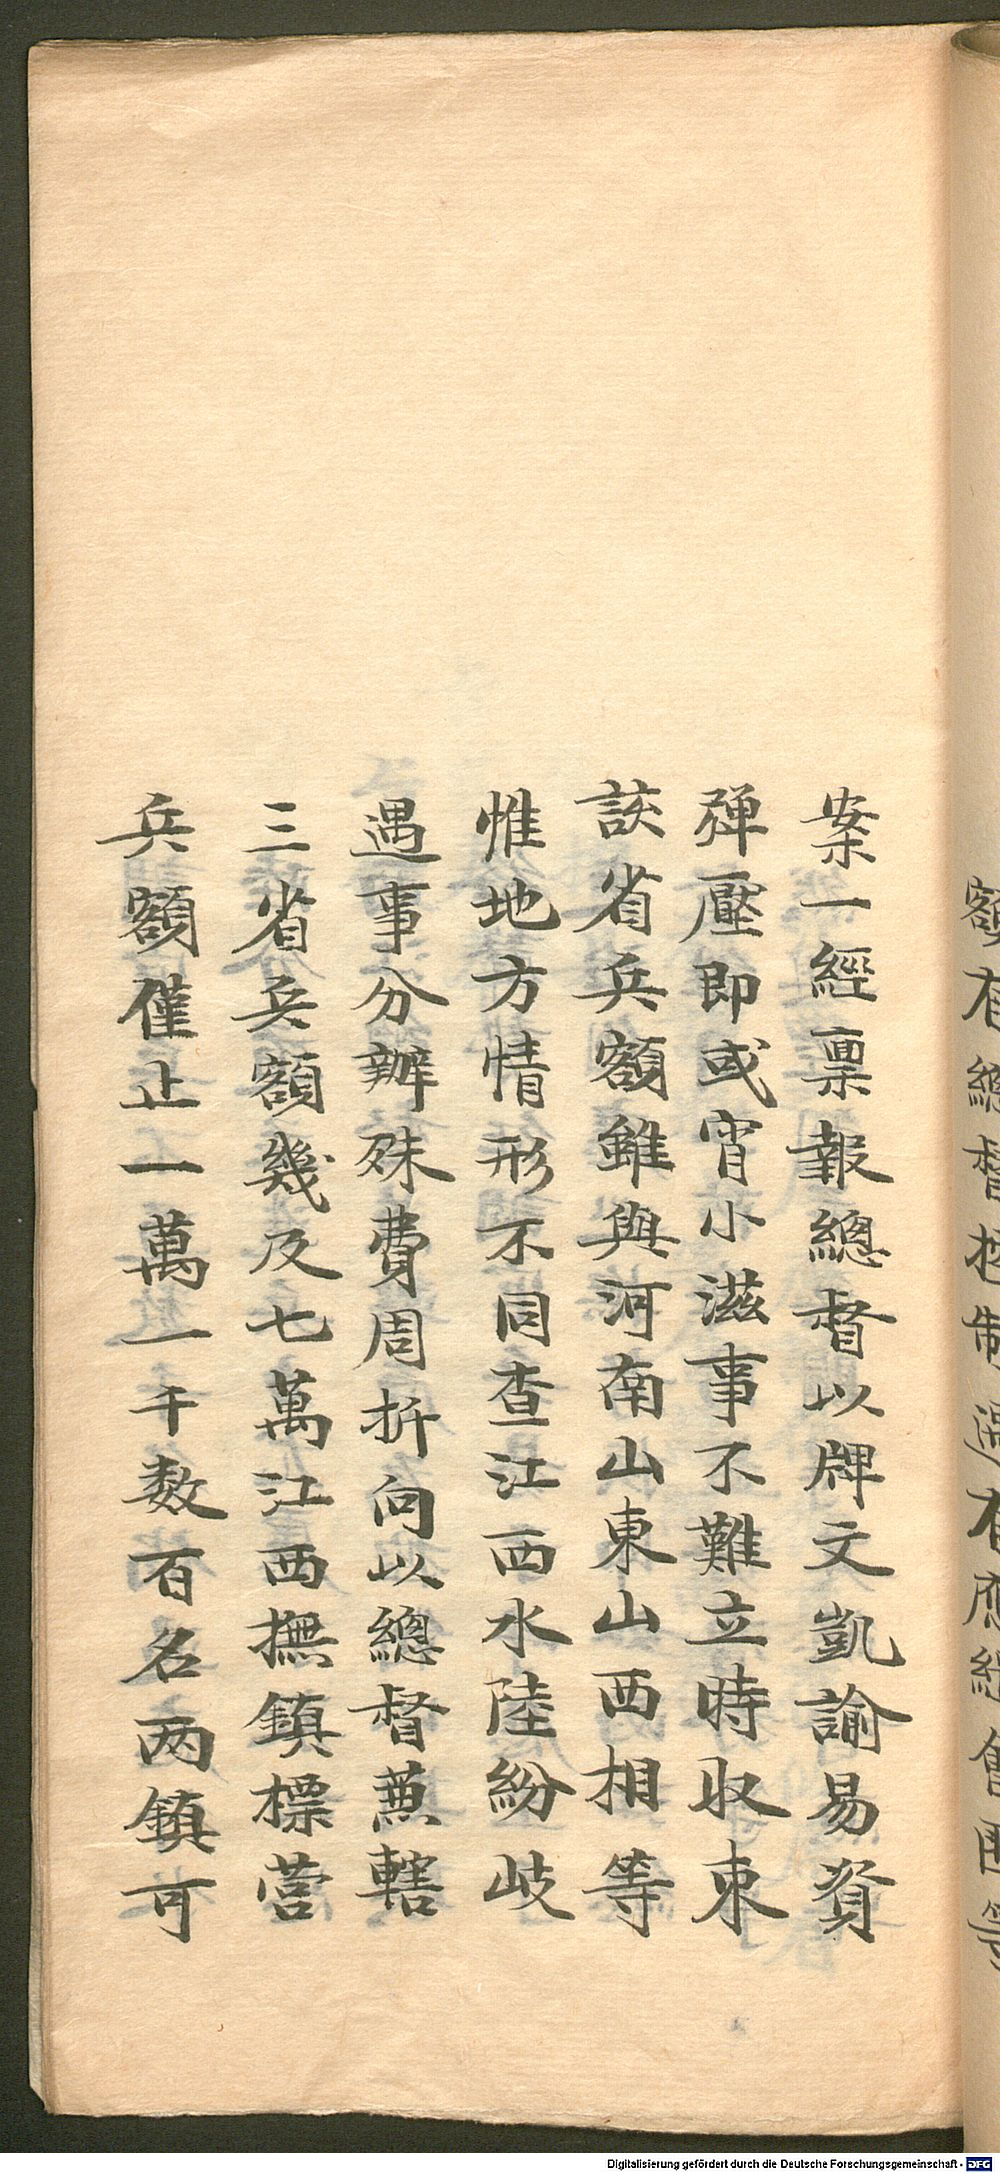 案一經禀報總督以牌文凱諭易資
弹壓即或宵小滋事不難立時収束
該省兵額雖與河南山東山西相等
惟地方情形不同查江西水陸紛岐
遇事分辦殊費周折向以總督蕉轄
三省兵額幾及七萬江西撫鎮標营
兵額僅止一萬一千数百名两鎮可
Digitalisierung gefördert durch die Deutsche Forschungsgemeinschaft - DFG